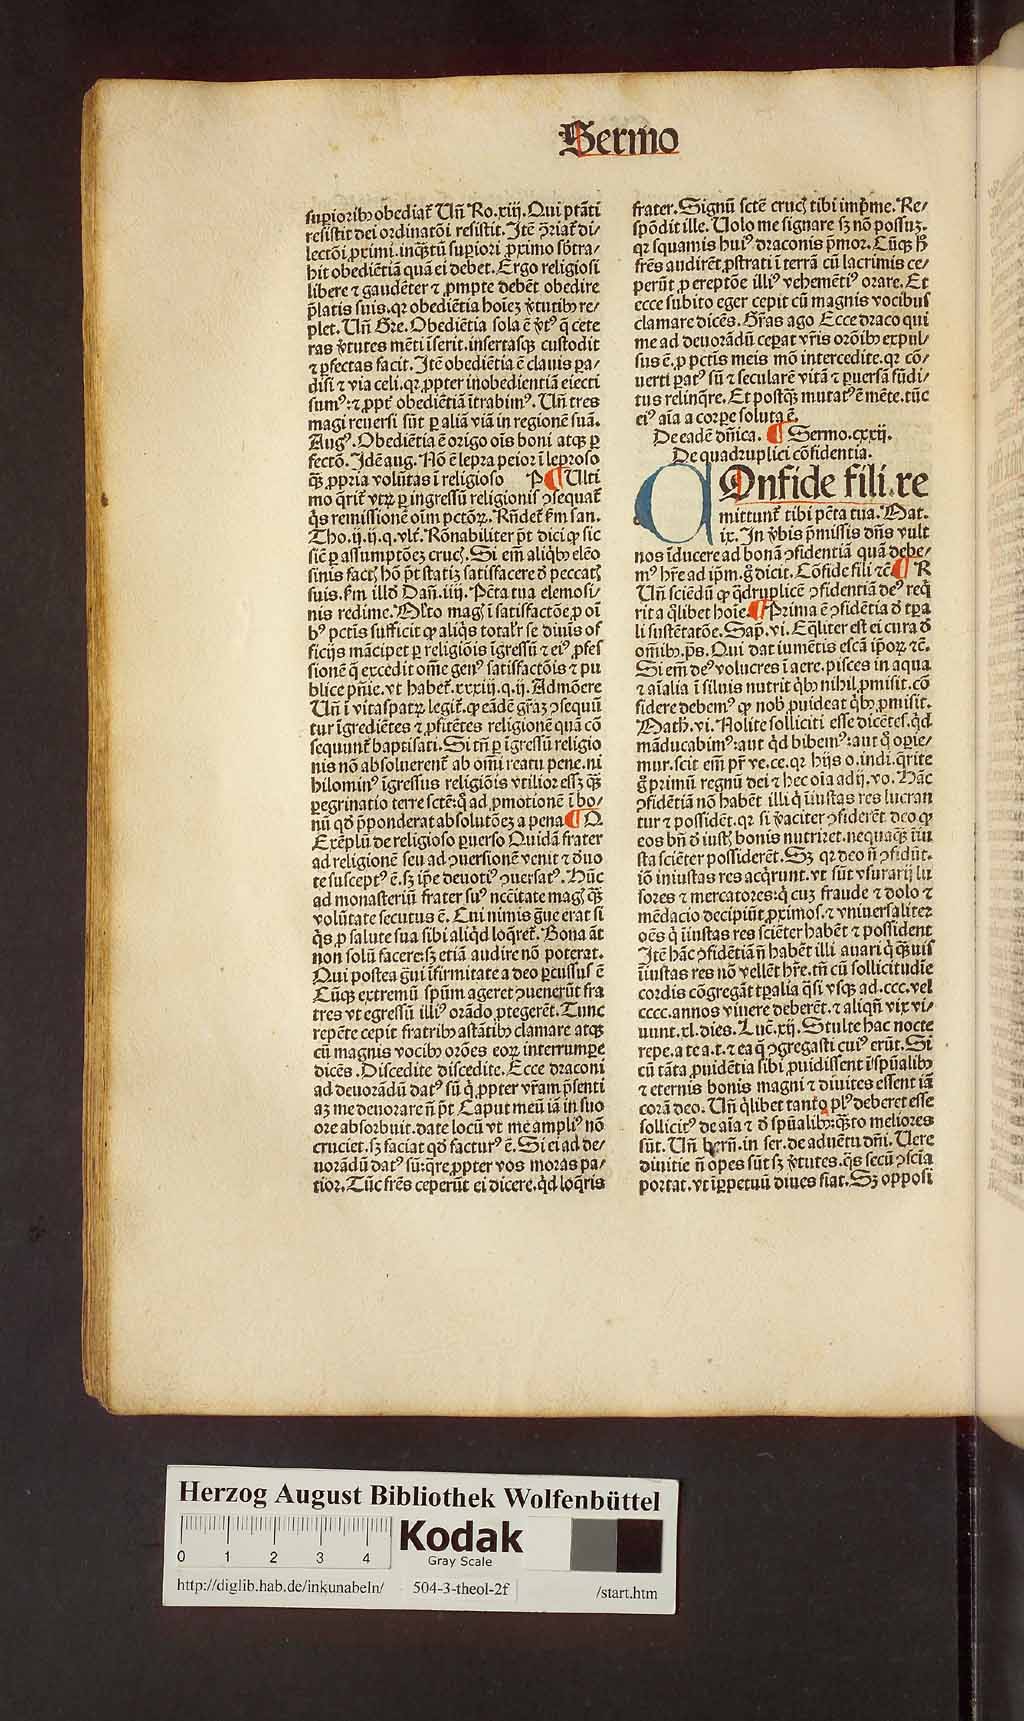 Sermo
supioribꝫ obediat̃ Vñ Ro.xiij. Qui ptãti
resistit dei ordinatõi resistit. Itẽ ꝯriat̃ di/
lectõi ꝓximi.inqꝫtũ supiori ꝓximo sb̾tra/
hit obediẽtiã quã ei debet. Ergo religiosi
libere ⁊ gaudẽter ⁊ ꝓmpte debẽt obedire
p̃latis suis.qꝛ obediẽtia hoĩeꝫ ꝟtutibꝫ re/
plet. Vñ Gre. Obediẽtia sola ẽ ꝟtꝰ q̃ cete
ras ꝟtutes mẽti ĩserit.insertasqꝫ custodit
⁊ ꝑfectas facit. Itẽ obediẽtia ẽ clauis pa/
disi ⁊ via celi.qꝛ ꝓpter inobedientiã eiecti
sumꝰ:⁊ ꝓpt̃ obediẽtiã ĩtrabimꝰ. Vñ tres
magi reuersi sũt ꝑ aliã viã in regionẽ suã.
Augꝰ. Obediẽtia ẽ origo oĩs boni atqꝫ ꝑ
fectõ. Idẽ aug. Nõ ẽ lepra peior ĩ leproso
qꝫ̃ ꝓpria volũtas ĩ religioso P ¶ Ulti
mo q̃rit̃ vtꝝ ꝑ ingressũ religionis ꝯsequat̃
q̃s remissionẽ oĩm pctõꝝ. Rñdet̃ ẜm san.
Tho.ij.ij.q.vlt̃. Rõnabiliter p̃t dici ꝙ sic
sic̃ ꝑ assumptõeꝫ crucꝭ. Si em̃ aliqͥbꝫ eleo
sinis factꝭ hõ p̃t statiꝫ satisfacere ď peccatꝭ
suis.ẜm illď Dañ.iiij. Pc̃ta tua elemosi/
nis redime. Ml̃to magꝭ ĩ satisfactõe ꝓ oĩ
bꝰ pctis sufficit ꝙ aliq̃s totalr̃ se diuis of
ficijs mãcipet ꝑ religiõis ĩgressũ ⁊ eiꝰ ꝓfes
sionẽ q̃ excedit om̃e genꝰ satisfactõis ⁊ pu
blice pñie.vt habet̃.xxxiij.q.ij. Admõere
Vñ ĩ vitaspatꝝ legit̃.ꝙ eãdẽ gr̃aꝫ ꝯsequũ
tur ĩgrediẽtes ⁊ ꝓfitẽtes religionẽ quã cõ
sequunt̃ baptisati. Si tñ ꝑ ĩgressũ religio
nis nõ absoluerent̃ ab om̃i reatu pene.ni
hilominꝰ ĩgressus religiõis vtilior essꝫ qꝫ̃
ꝑegrinatio terre sctẽ:qͥ ad ꝓmotionẽ ĩ bo/
nũ qď p̃ponderat absolutõeꝫ a pena ¶ Q
Exẽplũ de religioso ꝑuerso Quidã frater
ad religionẽ seu ad ꝯuersionẽ venit ⁊ ďuo
te susceptꝰ ẽ.sꝫ ip̃e deuotiꝰ ꝯuersatꝰ. Hũc
ad monasteriũ frater suꝰ nc̃citate magꝭ qꝫ̃
volũtate secutus ẽ. Cui nimis g̃ue erat si
q̃s ꝓ salute sua sibi aliqͥd loq̃ret̃. Bona ãt
non solũ facere:sꝫ etiã audire nõ poterat.
Qui postea g̃ui ĩfirmitate a deo ꝑcussus ẽ
Cũqꝫ extremũ spũm ageret ꝯuenerũt fra
tres vt egressũ illiꝰ orãdo ꝓtegerẽt. Tunc
repẽte cepit fratribꝫ astãtibꝫ clamare atqꝫ
cũ magnis vocibꝫ orões eoꝝ interrumpe
dicẽs. Discedite discedite. Ecce draconi
ad deuorãdũ datꝰ sũ q̃ ꝓpter vr̃am p̃senti
aꝫ me deuorare ñ p̃t Caput meũ iã in suo
ore absorbuit.date locũ vt me ampliꝰ nõ
cruciet.sꝫ faciat qď facturꝰ ẽ. Si ei ad de/
uorãdũ datꝰ sũ:q̃re ꝓpter vos moras pa/
tior. Tũc frẽs ceperũt ei dicere.qͥd loq̃ris
frater. Signũ sctẽ crucꝭ tibi imp̃me. Re/
spõdit ille. Uolo me signare sꝫ nõ possuꝫ.
qꝛ squamis huiꝰ draconis p̃mor. Cũqꝫ h̾
frẽs audirẽt ꝓstrati ĩ terrã cũ lacrimis ce/
perũt ꝓ ereptõe illiꝰ vehemẽtiꝰ orare. Et
ecce subito eger cepit cũ magnis vocibus
clamare dicẽs. Gr̃as ago Ecce draco qui
me ad deuorãdũ ceꝑat vr̃is orõibꝫ expul/
sus ẽ.ꝓ pctis meis mõ intercedite.qꝛ cõ/
uerti ꝑatꝰ sũ ⁊ secularẽ vitã ⁊ ꝑuersã fũdi/
tus relinq̃re. Et postqꝫ̃ mutatꝰ ẽ mẽte.tũc
eiꝰ aĩa a corpe soluta ẽ.
De eadẽ dñica. ¶ Sermo.cxxij.
De quadruplici cõfidentia.
COnfide fili.re
mittunt̃ tibi pc̃ta tua. Mat.
ix. In ꝟbis p̃missis dñs vult
nos ĩducere ad bonã ꝯfidentiã quã debe/
mꝰ hr̃e ad ip̃m.g̊ dicit. Cõfide fili ⁊c̃ ¶ R
Vñ sciẽdũ ꝙ qͣdruplicẽ ꝯfidentiã deꝰ reqͥ
rit a qͥlibet hoĩe ¶ Prima ẽ ꝯfidẽtia ď tꝑa
li sustẽtatõe. Sap.vi. Eq̃liter est ei cura ď
om̃ibꝫ.p̃s. Qui dat iumẽtis escã ip̃oꝝ ⁊c̃.
Si em̃ deꝰ volucres ĩ aere.pisces in aqua
⁊ aĩalia ĩ siluis nutrit qͥbꝫ nihil ꝓmisit.cõ
fidere debemꝰ ꝙ nob̾ ꝓuideat qͥbꝫ ꝓmisit.
Math.vi. Nolite solliciti esse dicẽtes.qͥd
mãducabimꝰ:aut qͥd bibemꝰ:aut qͦ oꝑie/
mur.scit em̃ pr̃ ve.ce.qꝛ hijs o.indi.q̃rite
g̊ primũ regnũ dei ⁊ hec oĩa adij.vo. Hãc
ꝯfidẽtiã nõ habẽt illi qͥ ĩiustas res lucran
tur ⁊ possidẽt.qꝛ si ꝟaciter ꝯfiderẽt deo ꝙ
eos bñ ď iustꝭ bonis nutriret.nequaqꝫ̃ ĩiu
sta sciẽter possiderẽt. Sꝫ qꝛ deo ñ ꝯfidũt.
iõ iniustas res acqͥrunt.vt sũt vsurarij lu
sores ⁊ mercatores:qͥ cuꝫ fraude ⁊ dolo ⁊
mẽdacio decipiũt ꝓximos.⁊ vniuersaliter
oẽs qͥ ĩiustas res sciẽter habẽt ⁊ possident
Itẽ hãc ꝯfidẽtiã ñ habẽt illi auari qͥ qꝫ̃uis
ĩiustas res nõ vellẽt hr̃e.tñ cũ sollicitudie
cordis cõgregãt tꝑalia q̃si vsqꝫ ad.ccc.vel
cccc.annos viuere deberẽt.⁊ aliqñ vix vi/
uunt.xl.dies. Luc̃.xij. Stulte hac nocte
repe.a te a.t.⁊ ea q̃ ꝯgregasti cuiꝰ erũt. Si
cũ tãta ꝓuidẽtia sibi ꝓuidissent ĩ spũalibꝫ
⁊ eternis bonis magni ⁊ diuites essent iã
corã deo. Vñ qͥlibet tanto plꝰ deberet esse
sollicitꝰ de aĩa ⁊ ď spũalibꝫ:qꝫ̃to meliores
sũt. Vñ bern̄.in ser.de aduẽtu dñi. Uere
diuitie ñ opes sũt sꝫ ꝟtutes.q̃s secũ ꝯscĩa
portat.vt ĩꝑpetuũ diues fiat. Sꝫ opposi
Herzog August Bibliothek Wolfenbüttel
0 1 2 3 4 Kodak
Gray Scale
http://diglib.hab.de/inkunabeln/ 504-3-theol-2f /start.htm